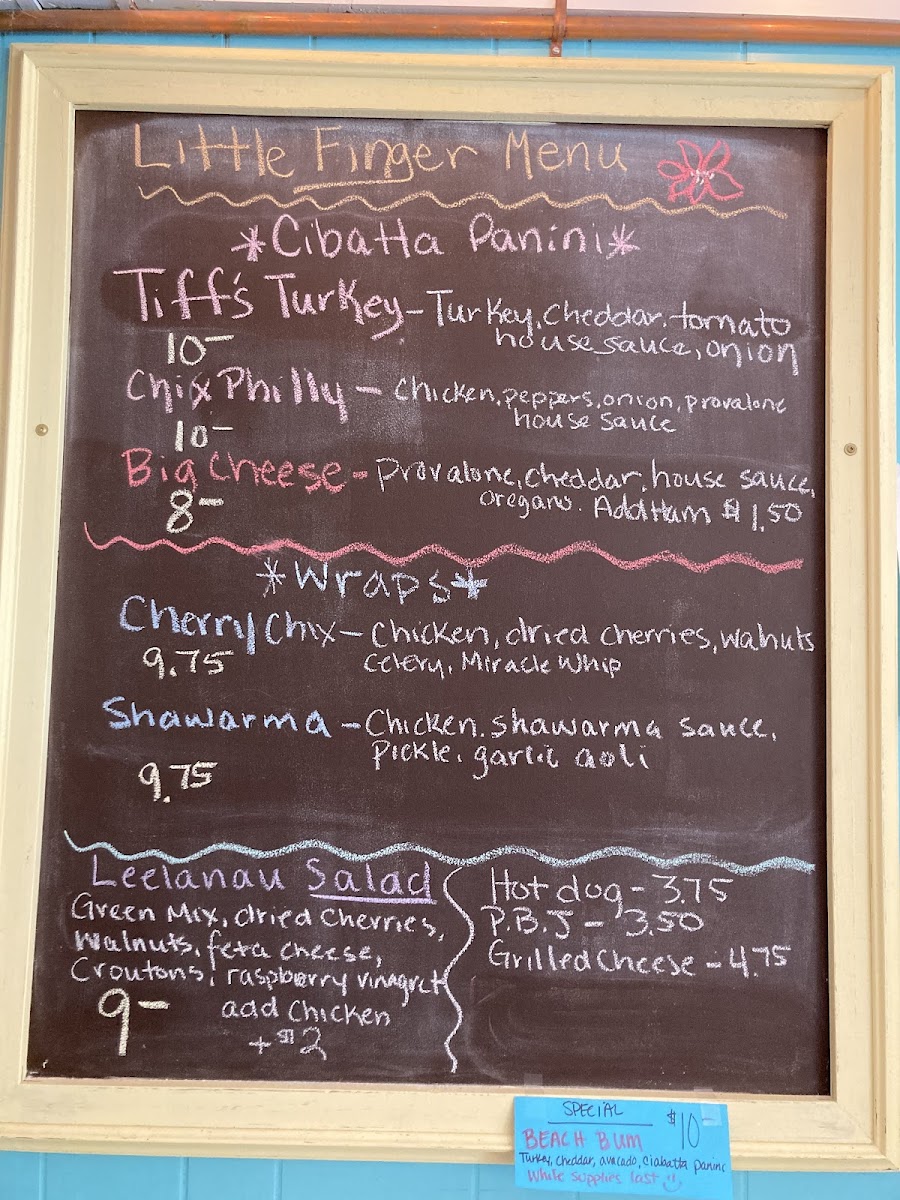 Little Finger Menu
*Cibatta Panini*
Tiff's Turkey - Turkey, Cheddar, tomato
house sauce, onion
10-
Chix Philly - Chicken, peppers, onion, provalone
house sauce
10-
Big Cheese - Provalone, cheddar, house sauce,
oregano. Add Ham $1.50
8-
*Wraps*
Cherry Chix - Chicken, dried cherries, walnuts
celery, Miracle Whip
9.75
Shawarma - Chicken, shawarma sauce,
pickle, garlic aoli
9.75
Leelanau Salad
Green Mix, dried Cherries,
Walnuts, feta cheese,
Croutons, raspberry vinagret
9-
add Chicken
+ $2
Hot dog - 3.75
P.B.J - 3.50
Grilled Cheese - 4.75
SPECIAL $10-
BEACH BUM
Turkey, cheddar, avacado, ciabatta panini
While supplies last :)